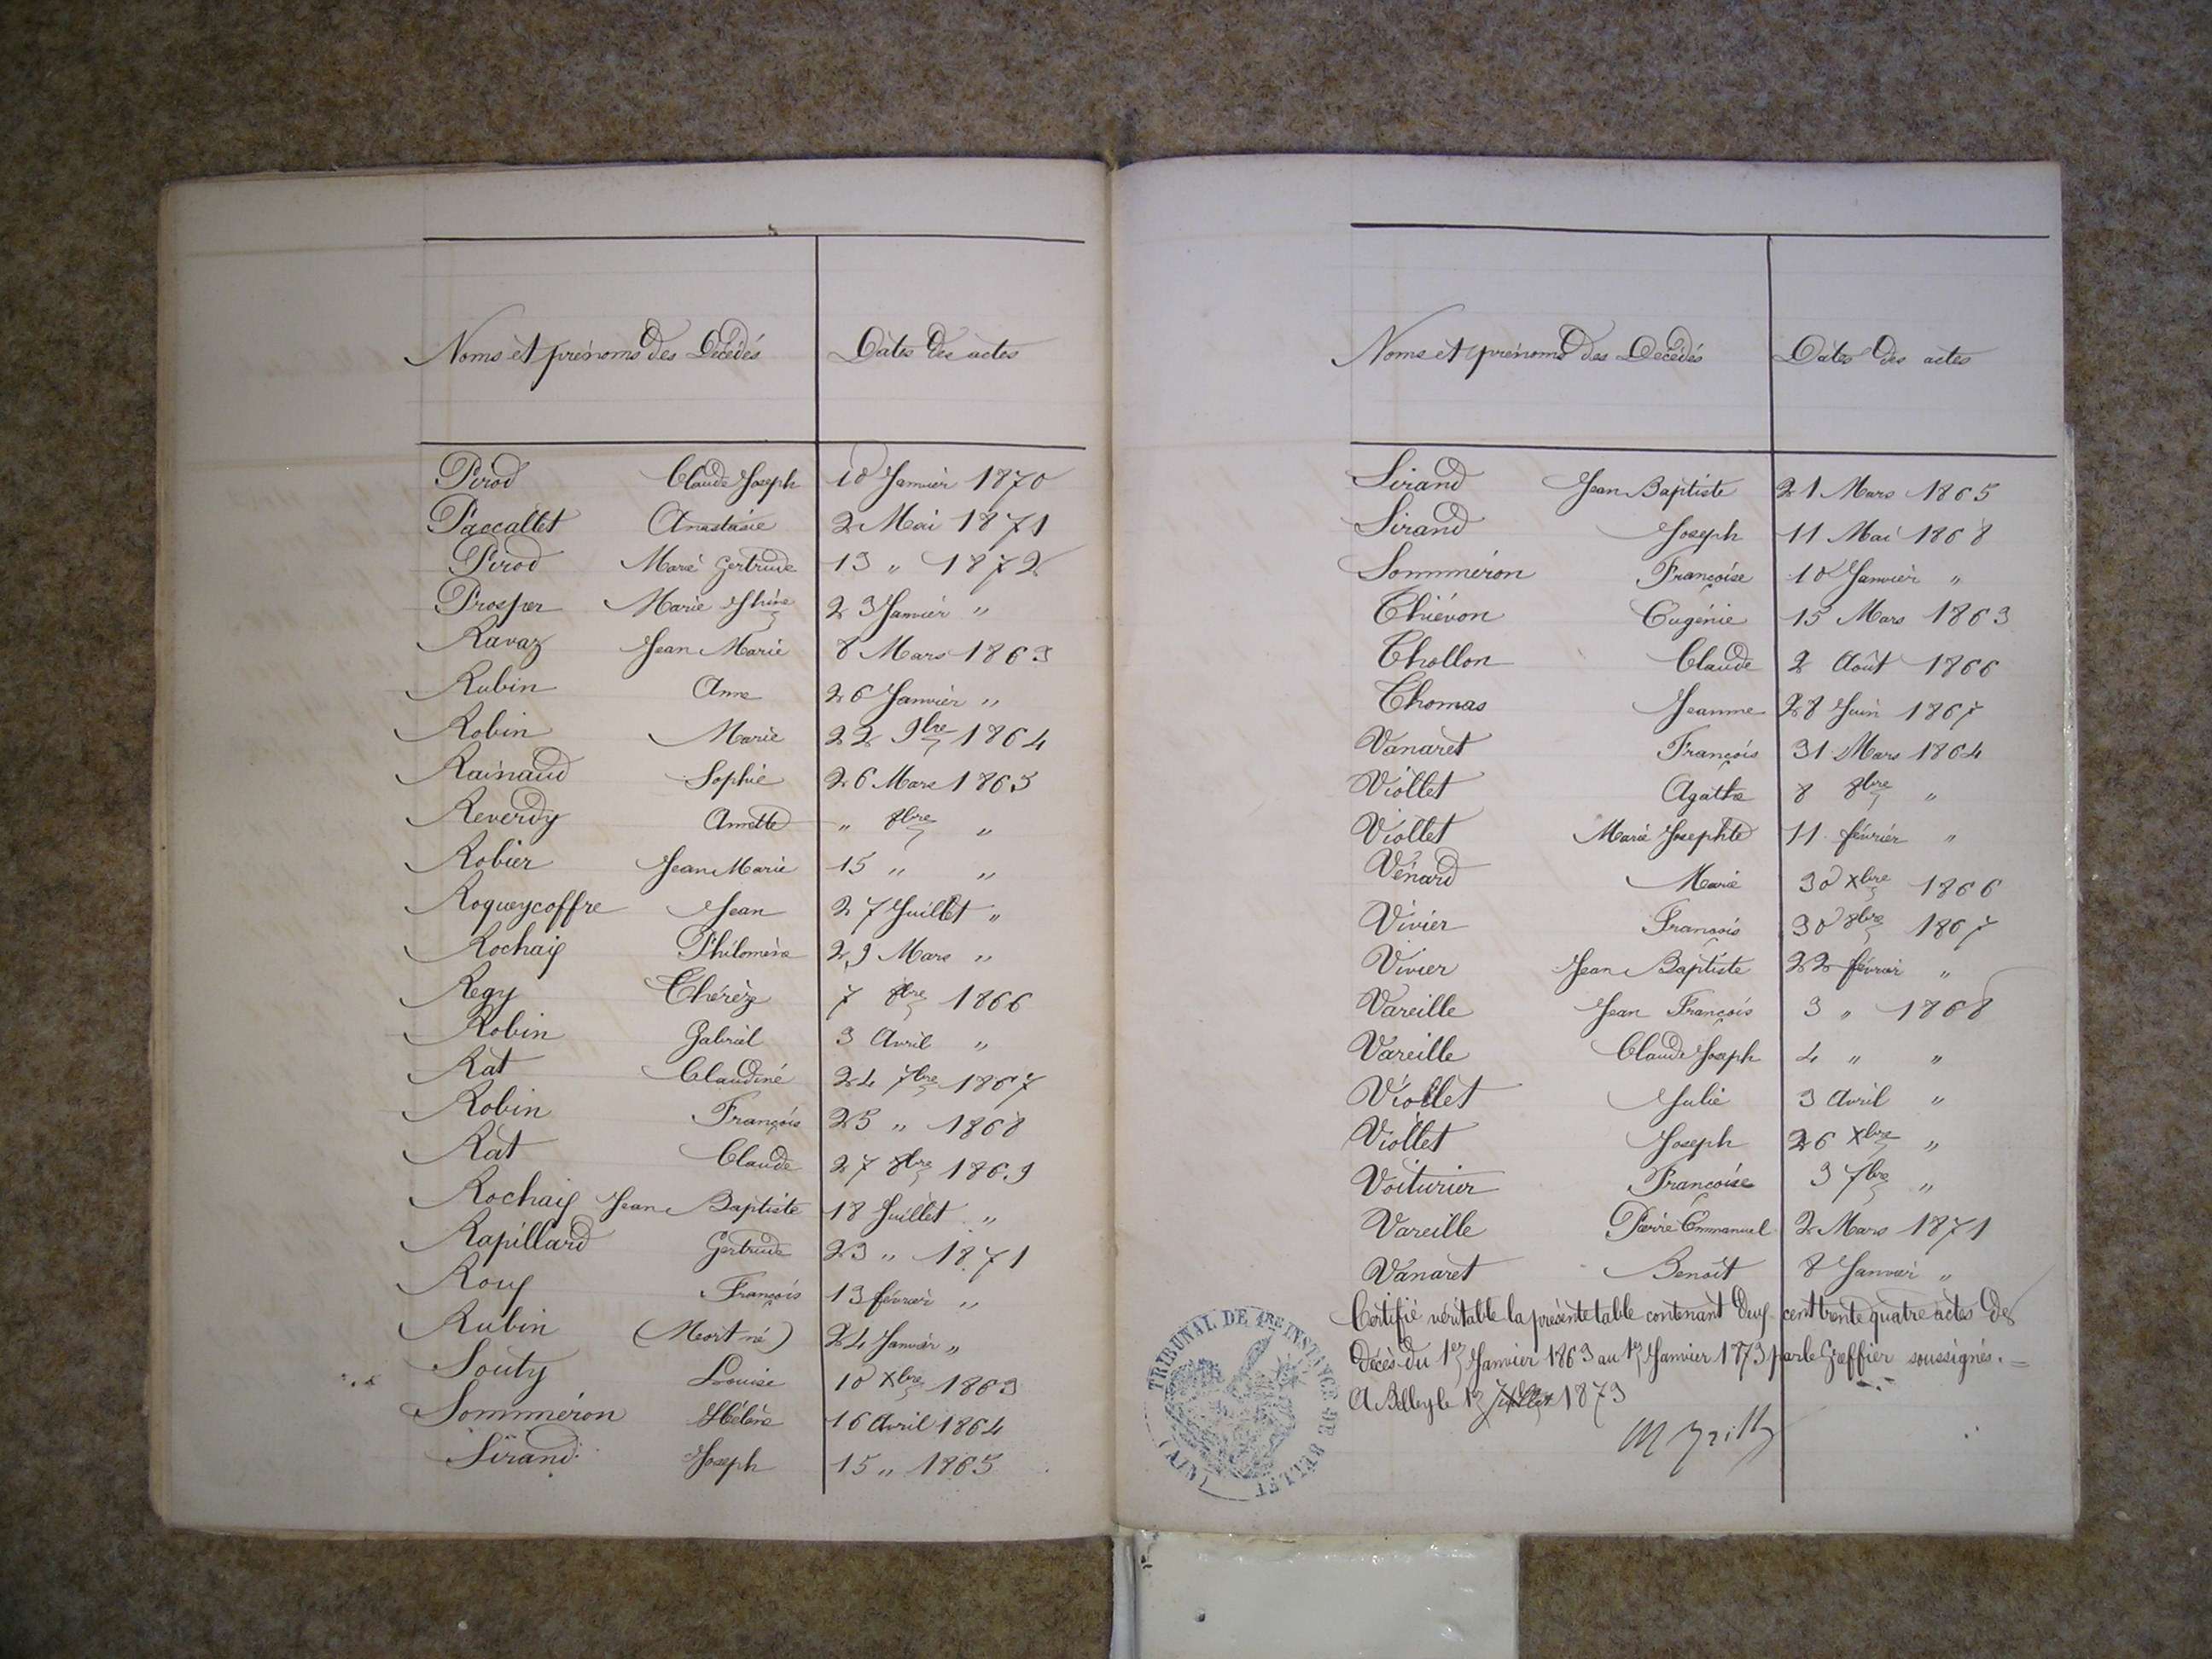 Noms et prénoms des Décédés Dates des actes
Pirod Claude Joseph 10 Janvier 1870
Paccallet Anastasie 2 Mai 1871
Pirod Marie Gertrude 13 " 1872
Prosper Marie 23 Janvier "
Ravaz Jean Marie 8 Mars 1863
Rubin Anne 26 Janvier "
Robin Marie 22 9bre 1864
Rainaud Sophie 26 Mars 1865
Reverdy Annette " 8bre "
Robier Jean Marie 15 " "
Roqueycoffre Jean 27 Juillet "
Rochaix Philomène 29 Mars "
Regy Thérèze 7 8bre 1866
Robin Gabriel 3 Avril "
Rat Claudine 24 7bre 1867
Robin François 25 " 1868
Rat Claude 27 8bre 1869
Rochaix Jean Baptiste 18 Juillet "
Rapillard Gertrude 23 " 1871
Roux François 13 février "
Rubin (Mort né) 24 Janvier "
Souty Louise 10 Xbre 1863
Sommeron Hélène 16 Avril 1864
Sirand Joseph 15 " 1865
Noms et prénoms des Décédés Dates des actes
Sirand Jean Baptiste 21 Mars 1865
Sirand Joseph 11 Mai 1868
Sommeron Françoise 10 Janvier "
Thiévon Eugénie 15 Mars 1863
Thollon Claude 2 Août 1866
Thomas Jeanne 28 Juin 1867
Vanaret François 31 Mars 1864
Viollet Agathe 8 8bre "
Viollet Marie Josephte 11 février "
Vénard Marie 30 Xbre 1866
Vivier François 30 8bre 1867
Vivier Jean Baptiste 22 février "
Vareille Jean François 3 " 1868
Vareille Claude Joseph 4 " "
Viollet Julie 3 Avril "
Viollet Joseph 26 Xbre "
Voiturier Françoise 3 7bre "
Vareille Pierre Emmanuel 2 Mars 1871
Vanaret Benoît 8 Janvier "
Certifié véritable la présente table contenant deux cent trente quatre actes de
décès du 1er Janvier 1863 au 1er Janvier 1873 par le Greffier soussigné. =
A Belley le 1er Juillet 1873
TRIBUNAL DE 1RE INSTANCE DE BELLEY
(AIN)